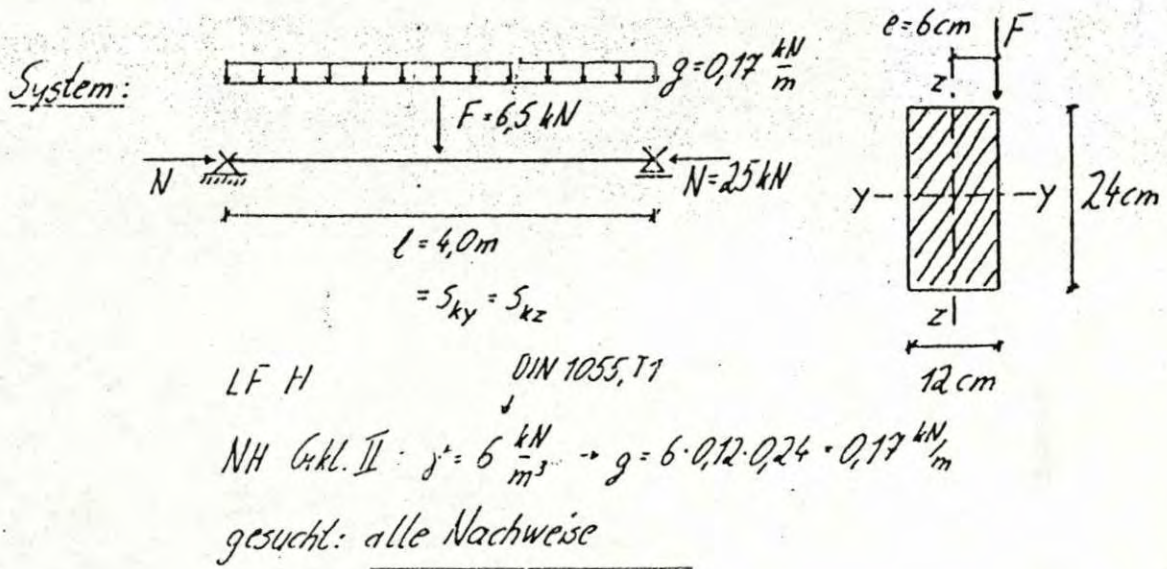 System:
g = 0,17 kN/m
F = 6,5 kN
N
N = 25 kN
l = 4,0 m
= Sky = Skz
e = 6 cm
F
z
y
y
24 cm
z
12 cm
LF H
DIN 1055, T1
NH Gkl. II : γ = 6 kN/m³ → g = 6 · 0,12 · 0,24 = 0,17 kN/m
gesucht: alle Nachweise